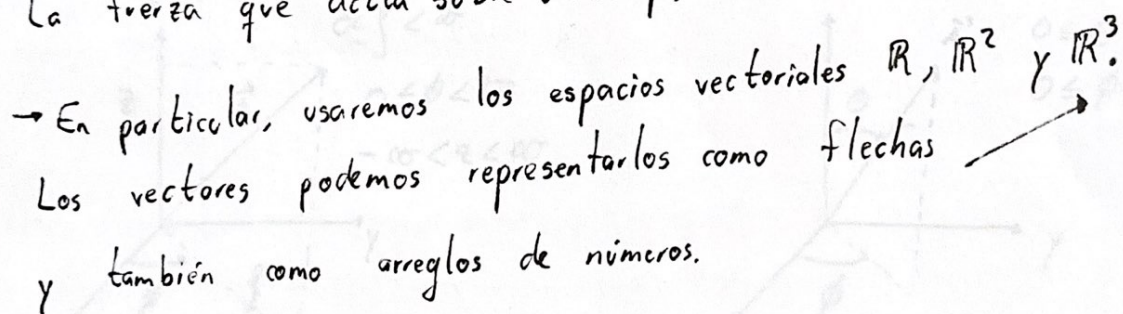 La fuerza que actúa
→ En particular, usaremos los espacios vectoriales ℝ, ℝ² y ℝ³.
Los vectores podemos representarlos como flechas
y también como arreglos de números.